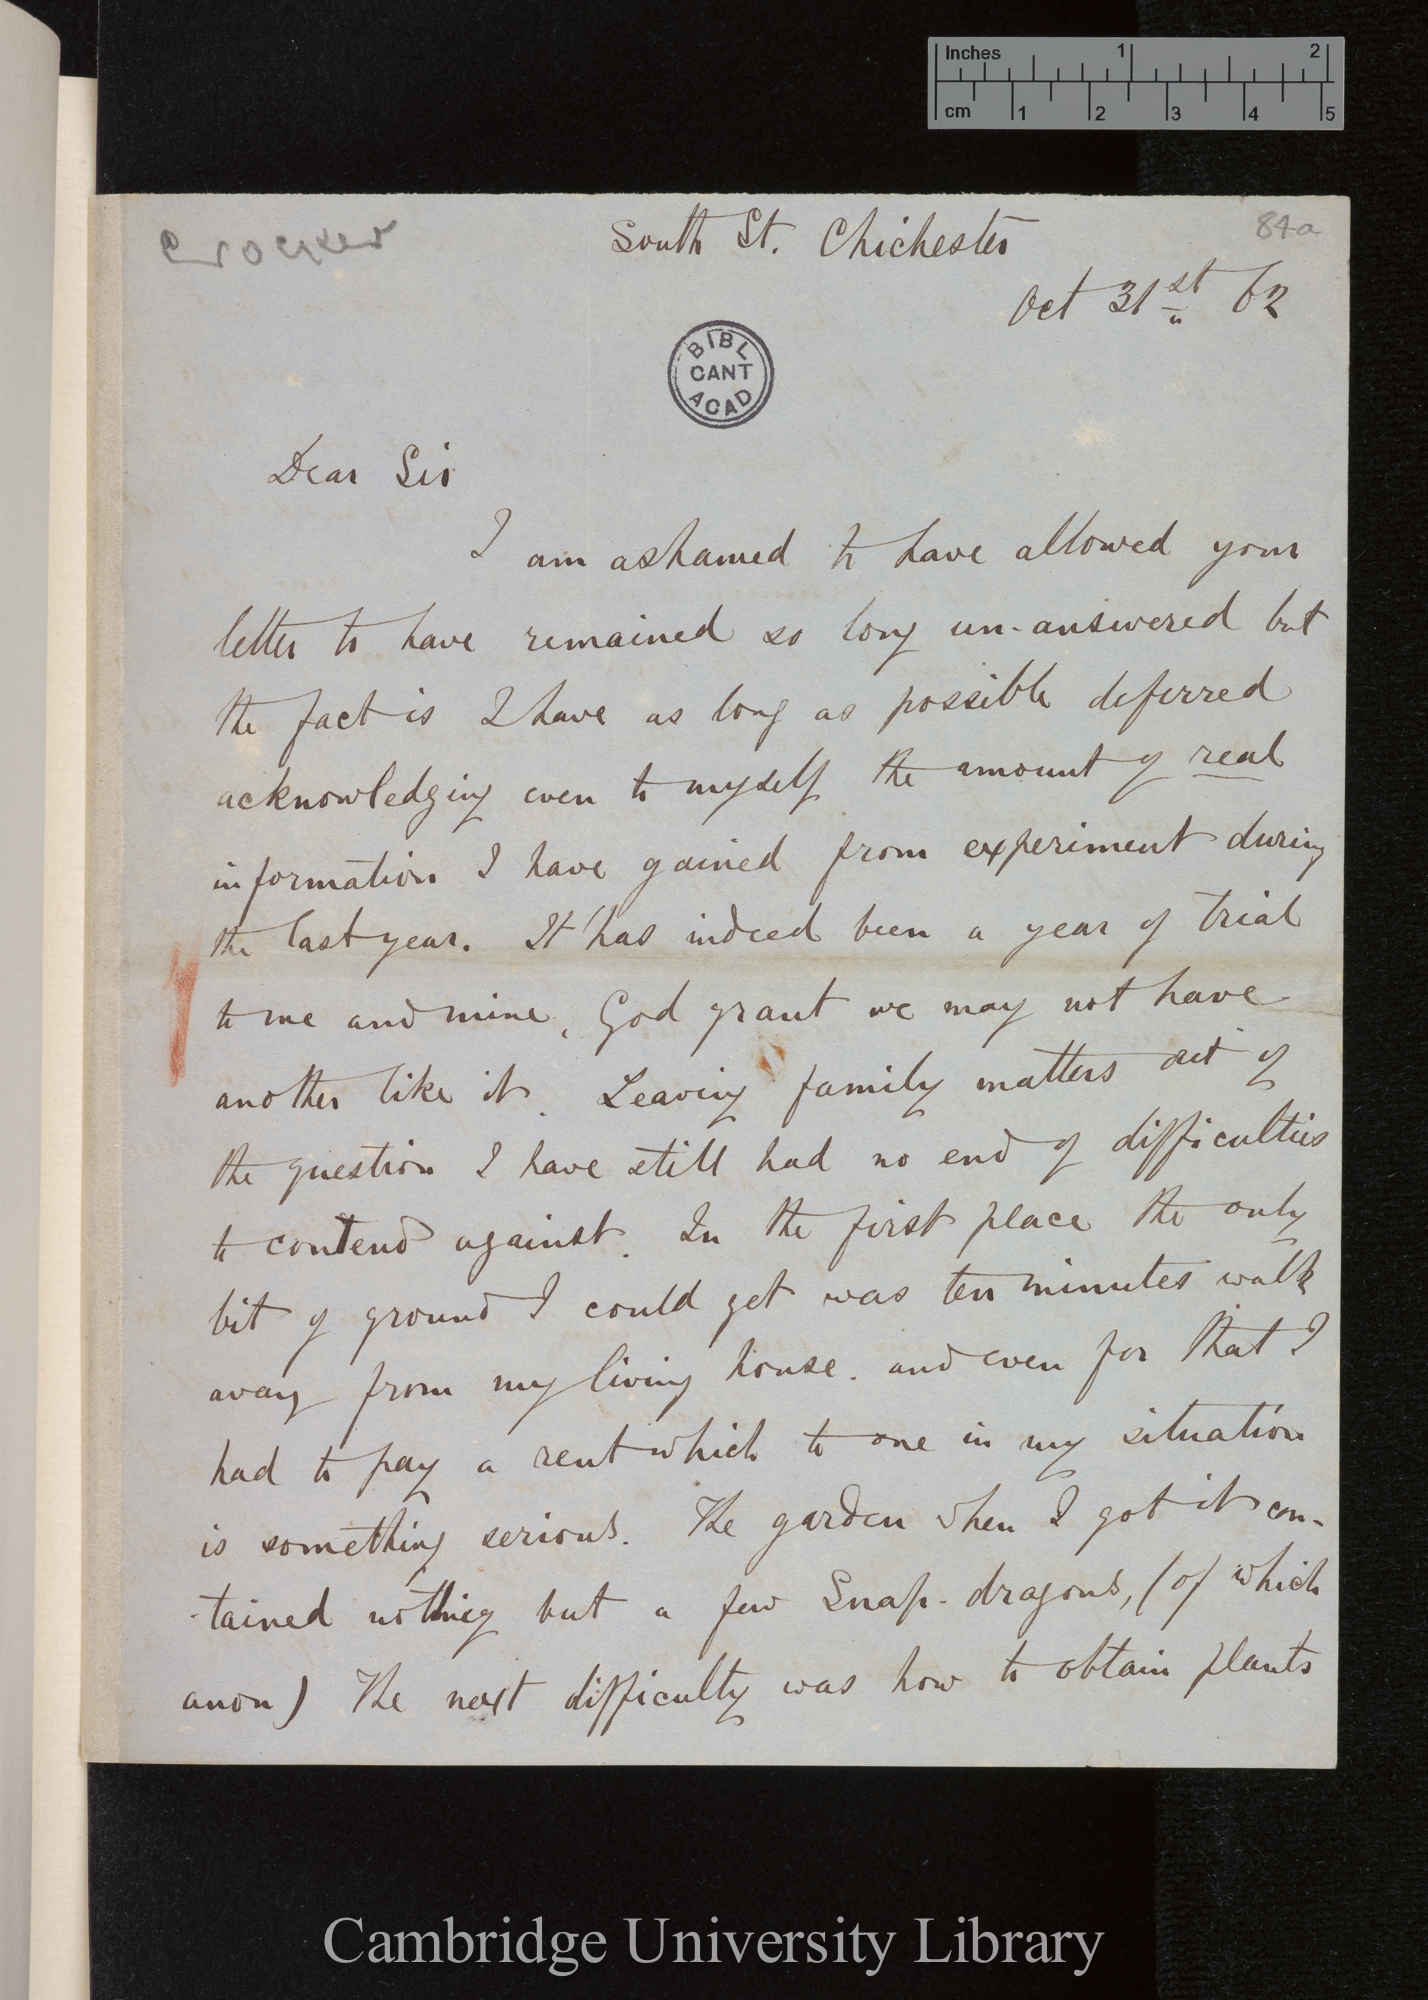 Inches 1 2
cm 1 2 3 4 5
Crocker
84a
South St. Chichester
Oct 31st 62
BIBL
CANT
ACAD
Dear Sir
I am ashamed to have allowed your
letter to have remained so long un-answered but
the fact is I have as long as possible deferred
acknowledging even to myself the amount of real
information I have gained from experiment during
the last year. It has indeed been a year of trial
to me and mine, God grant we may not have
another like it. Leaving family matters out of
the question I have still had no end of difficulties
to contend against. In the first place the only
bit of ground I could get was ten minutes walk
away from my living house. and even for that I
had to pay a rent which to one in my situation
is something serious. The garden when I got it con-
-tained nothing but a few Snap-dragons, (of which
anon) The next difficulty was how to obtain plants
Cambridge University Library